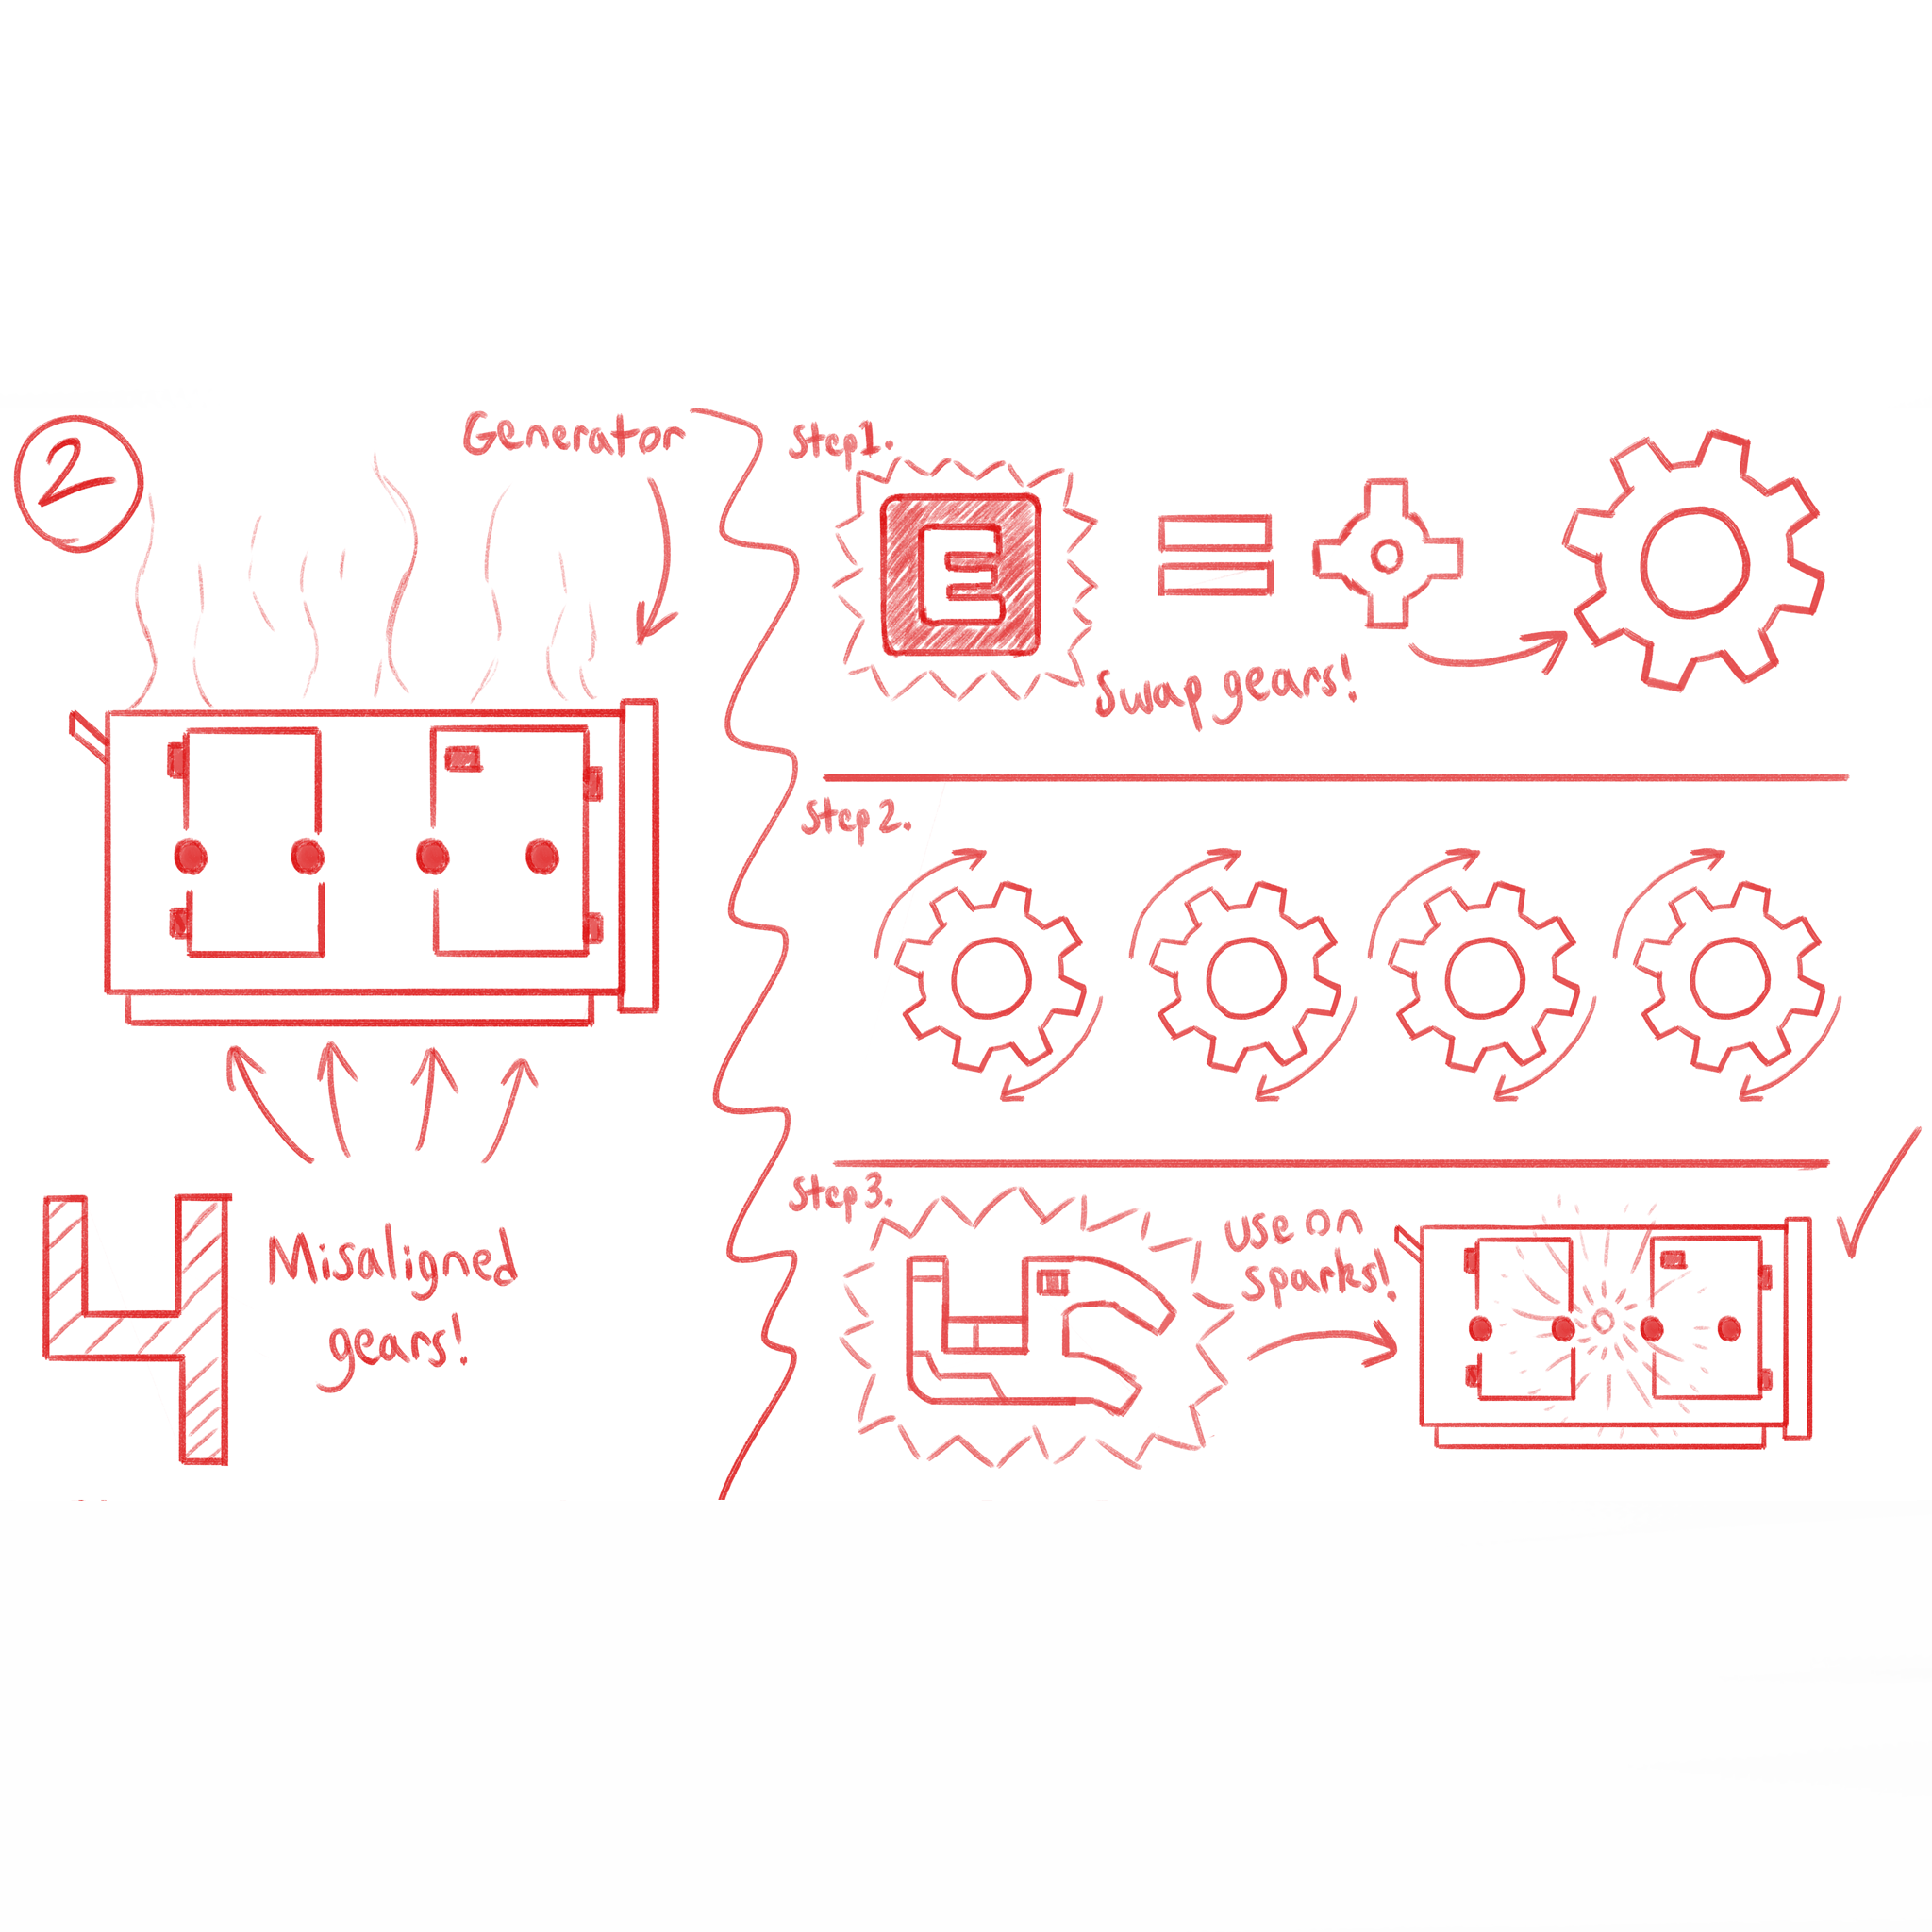 2
Generator
4
Misaligned
gears!
Step 1.
E
=
Swap gears!
Step 2.
Step 3.
Use on
sparks!